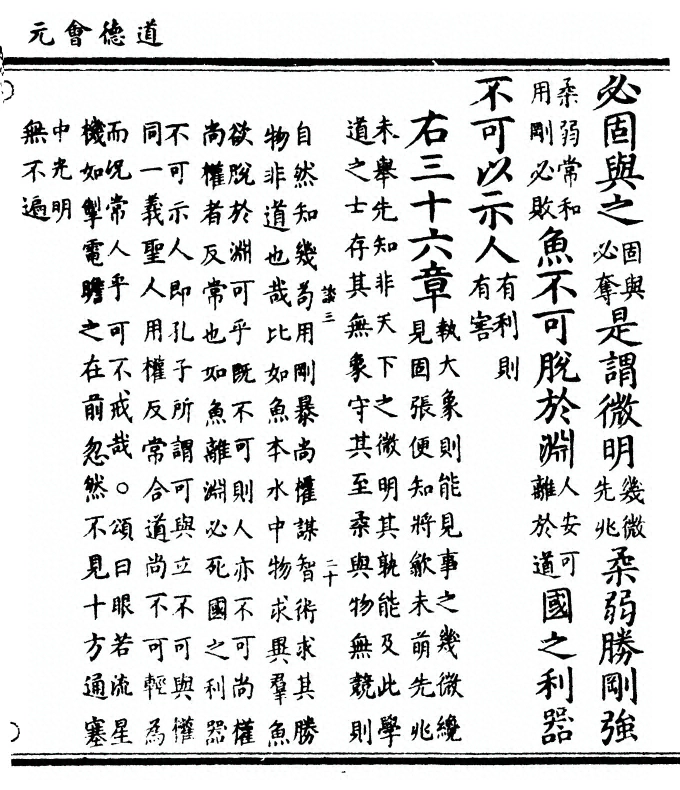 道德會元
必固與之固與必奪是謂微明幾微先兆柔弱勝剛強
柔弱常和用剛必敗魚不可脫於淵人安可離於道國之利器
不可以示人有利則有害
右三十六章執大象則能見事之幾微纔
見固張便知將歙未萌先兆
未舉先知非天下之微明其孰能及此學
道之士存其無象守其至柔與物無競則
談三 二十
自然知幾苟用剛暴尚權謀智術求其勝
物非道也哉比如魚本水中物求異羣魚
欲脫於淵可乎既不可則人亦不可尚權
尚權者反常也如魚離淵必死國之利器
不可示人即孔子所謂可與立不可與權
同一義聖人用權反常合道尚不可輕為
而況常人乎可不戒哉○頌曰眼若流星
機如掣電瞻之在前忽然不見十方通塞
中光明
無不遍